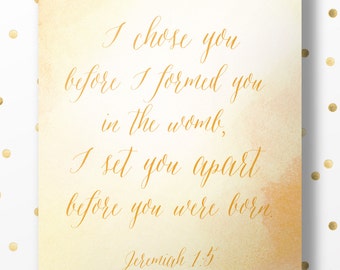 I chose you
before I formed you
in the womb,
I set you apart
before you were born.
Jeremiah 1:5